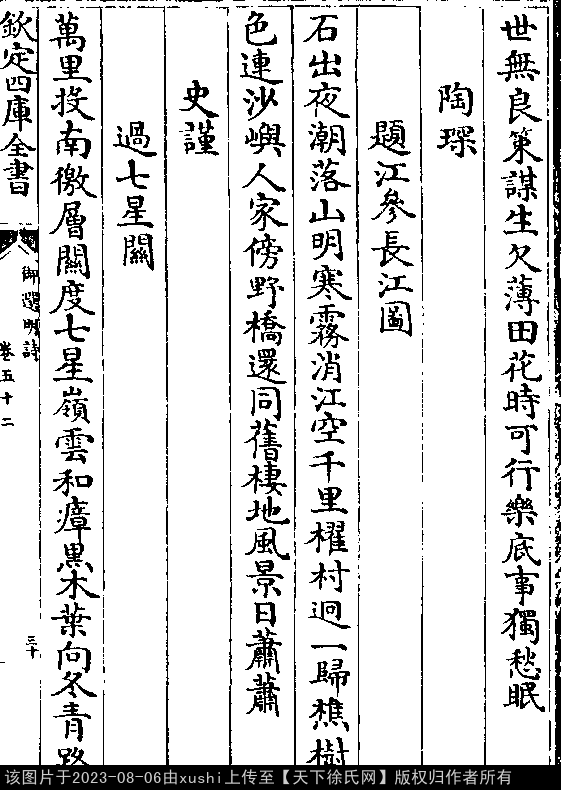 世無良策謀生欠薄田花時可行樂底事獨愁眠
陶琛
題江參長江圖
石出夜潮落山明寒霧消江空千里櫂村迥一歸樵樹
色連沙嶼人家傍野橋還同舊棲地風景日蕭蕭
史謹
過七星關
萬里投南徼層關度七星嶺雲和瘴黒木葉向冬青路
欽定四庫全書
御選明詩
卷五十二
三十
该图片于2023-08-06由xushi上传至【天下徐氏网】版权归作者所有